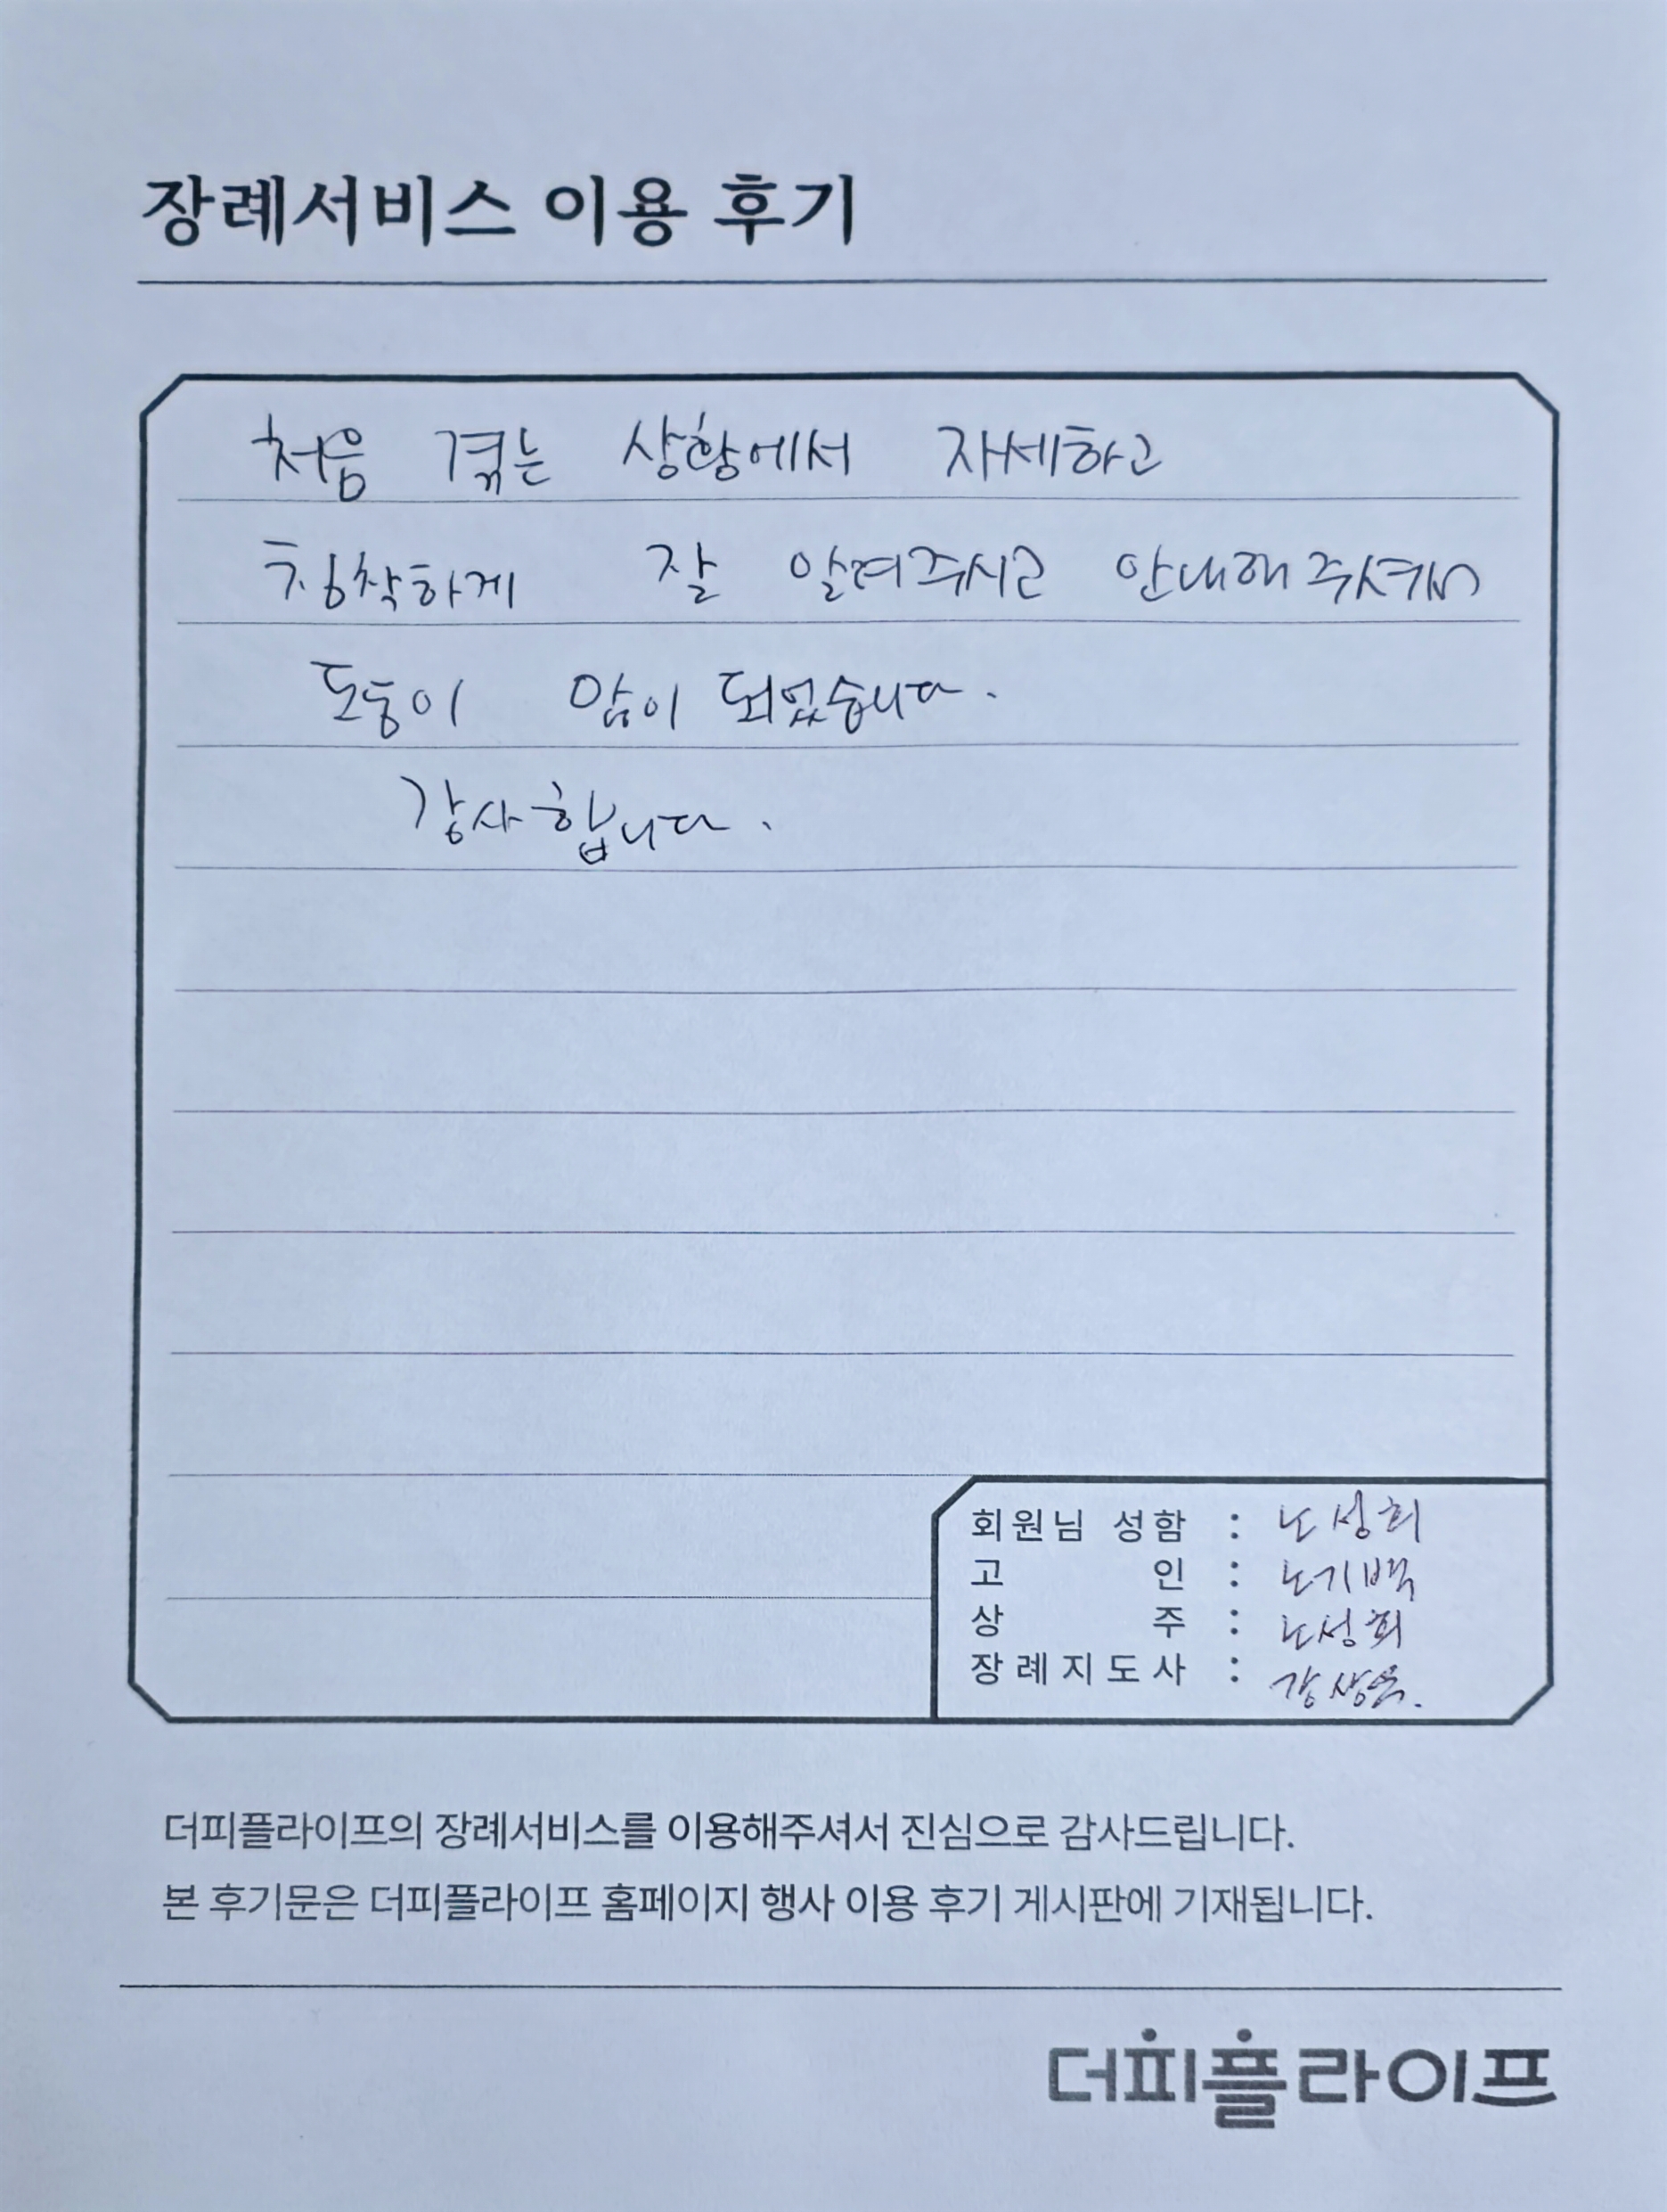 장례서비스 이용 후기
처음 겪는 상황에서 자세하고
침착하게 잘 알려주시고 안내해 주셔서
도움이 많이 되었습니다.
감사합니다.
회원님 성함 : 노성희
고 인 : 노기백
상 주 : 노성희
장례지도사 :
더피플라이프의 장례서비스를 이용해주셔서 진심으로 감사드립니다.
본 후기문은 더피플라이프 홈페이지 행사 이용 후기 게시판에 기재됩니다.
더피플라이프